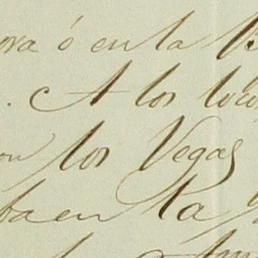 ora ó en la B
. A los loco
los Vegas
ba en la